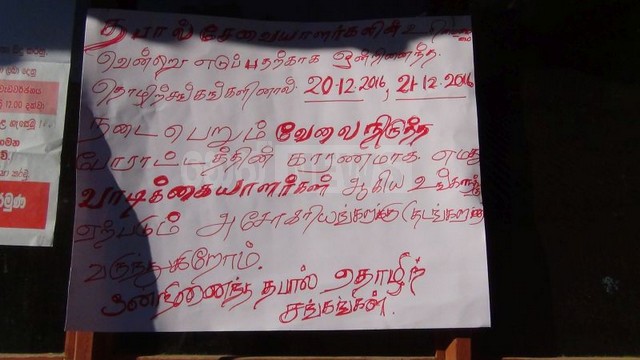 தபால் சேவையாளர்களின்
வென்று எடுப்பதற்காக ஒன்றிணைந்த
தொழிற்சங்கங்களினால் 20.12.2016, 21.12.2016
நடைபெறும் வேலை நிறுத்த
போராட்டத்தின் காரணமாக எமது
வாடிக்கையாளர்கள் ஆகிய உங்களுக்கு
ஏற்படும் அசௌகரியங்களுக்கு
வருந்துகிறோம்.
ஒன்றிணைந்த தபால் தொழிற்
சங்கங்கள்.